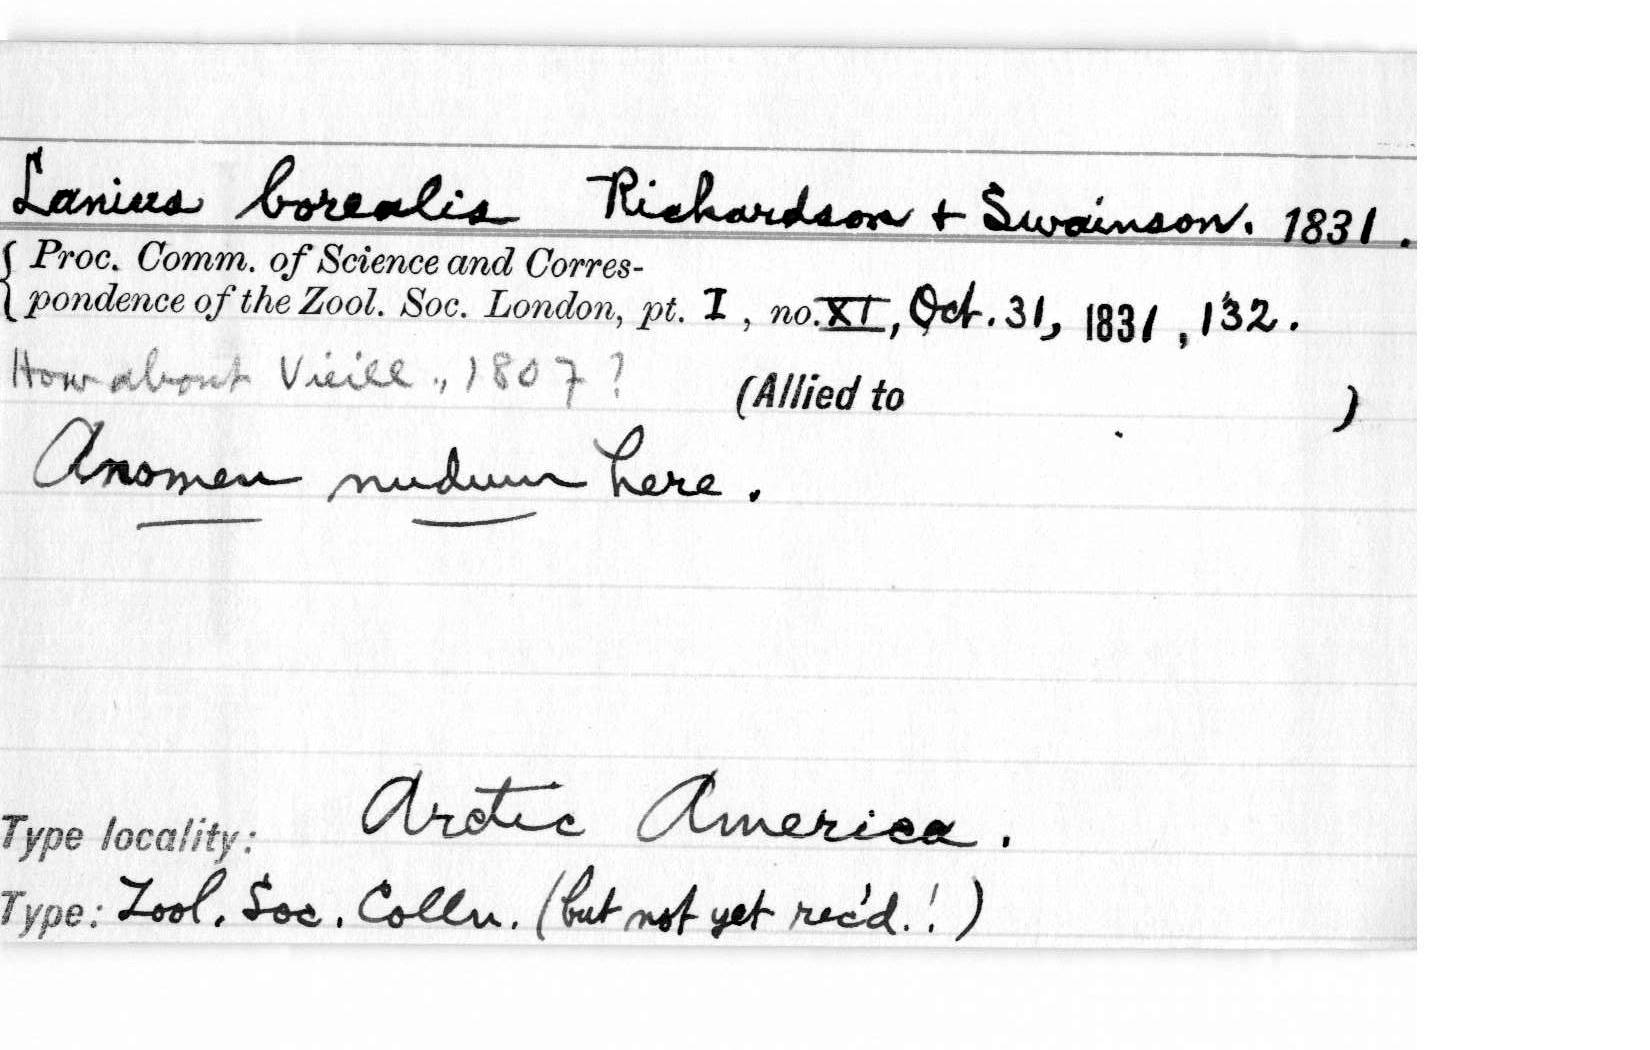 Lanius borealis Richardson + Swainson. 1831.
{ Proc. Comm. of Science and Corres-
pondence of the Zool. Soc. London, pt. I, no. XI, Oct. 31, 1831, 132.
How about Vieill., 1807?
(Allied to )
A nomen nudum here.
Type locality: Arctic America.
Type: Zool. Soc. Colln. (but not yet rec'd.!)